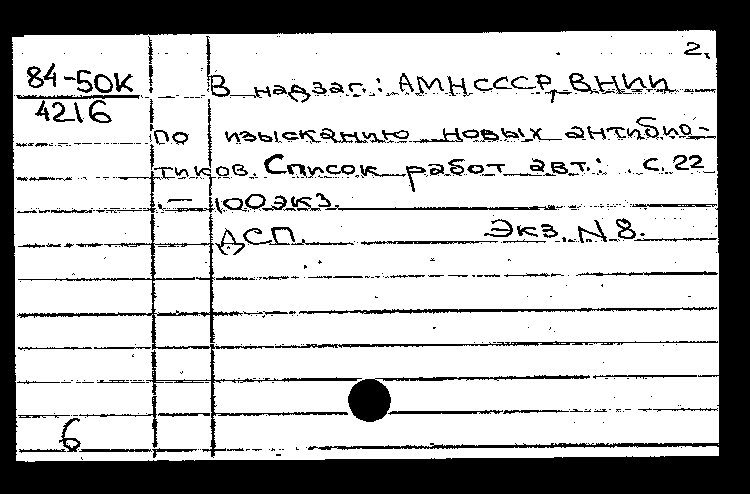 2.
84-50К
4216
В надзаг.: АМН СССР, ВНИИ
по изысканию новых антибио-
тиков. Список работ авт.: с. 22
.— 100 экз.
ДСП. Экз. N 8.
6